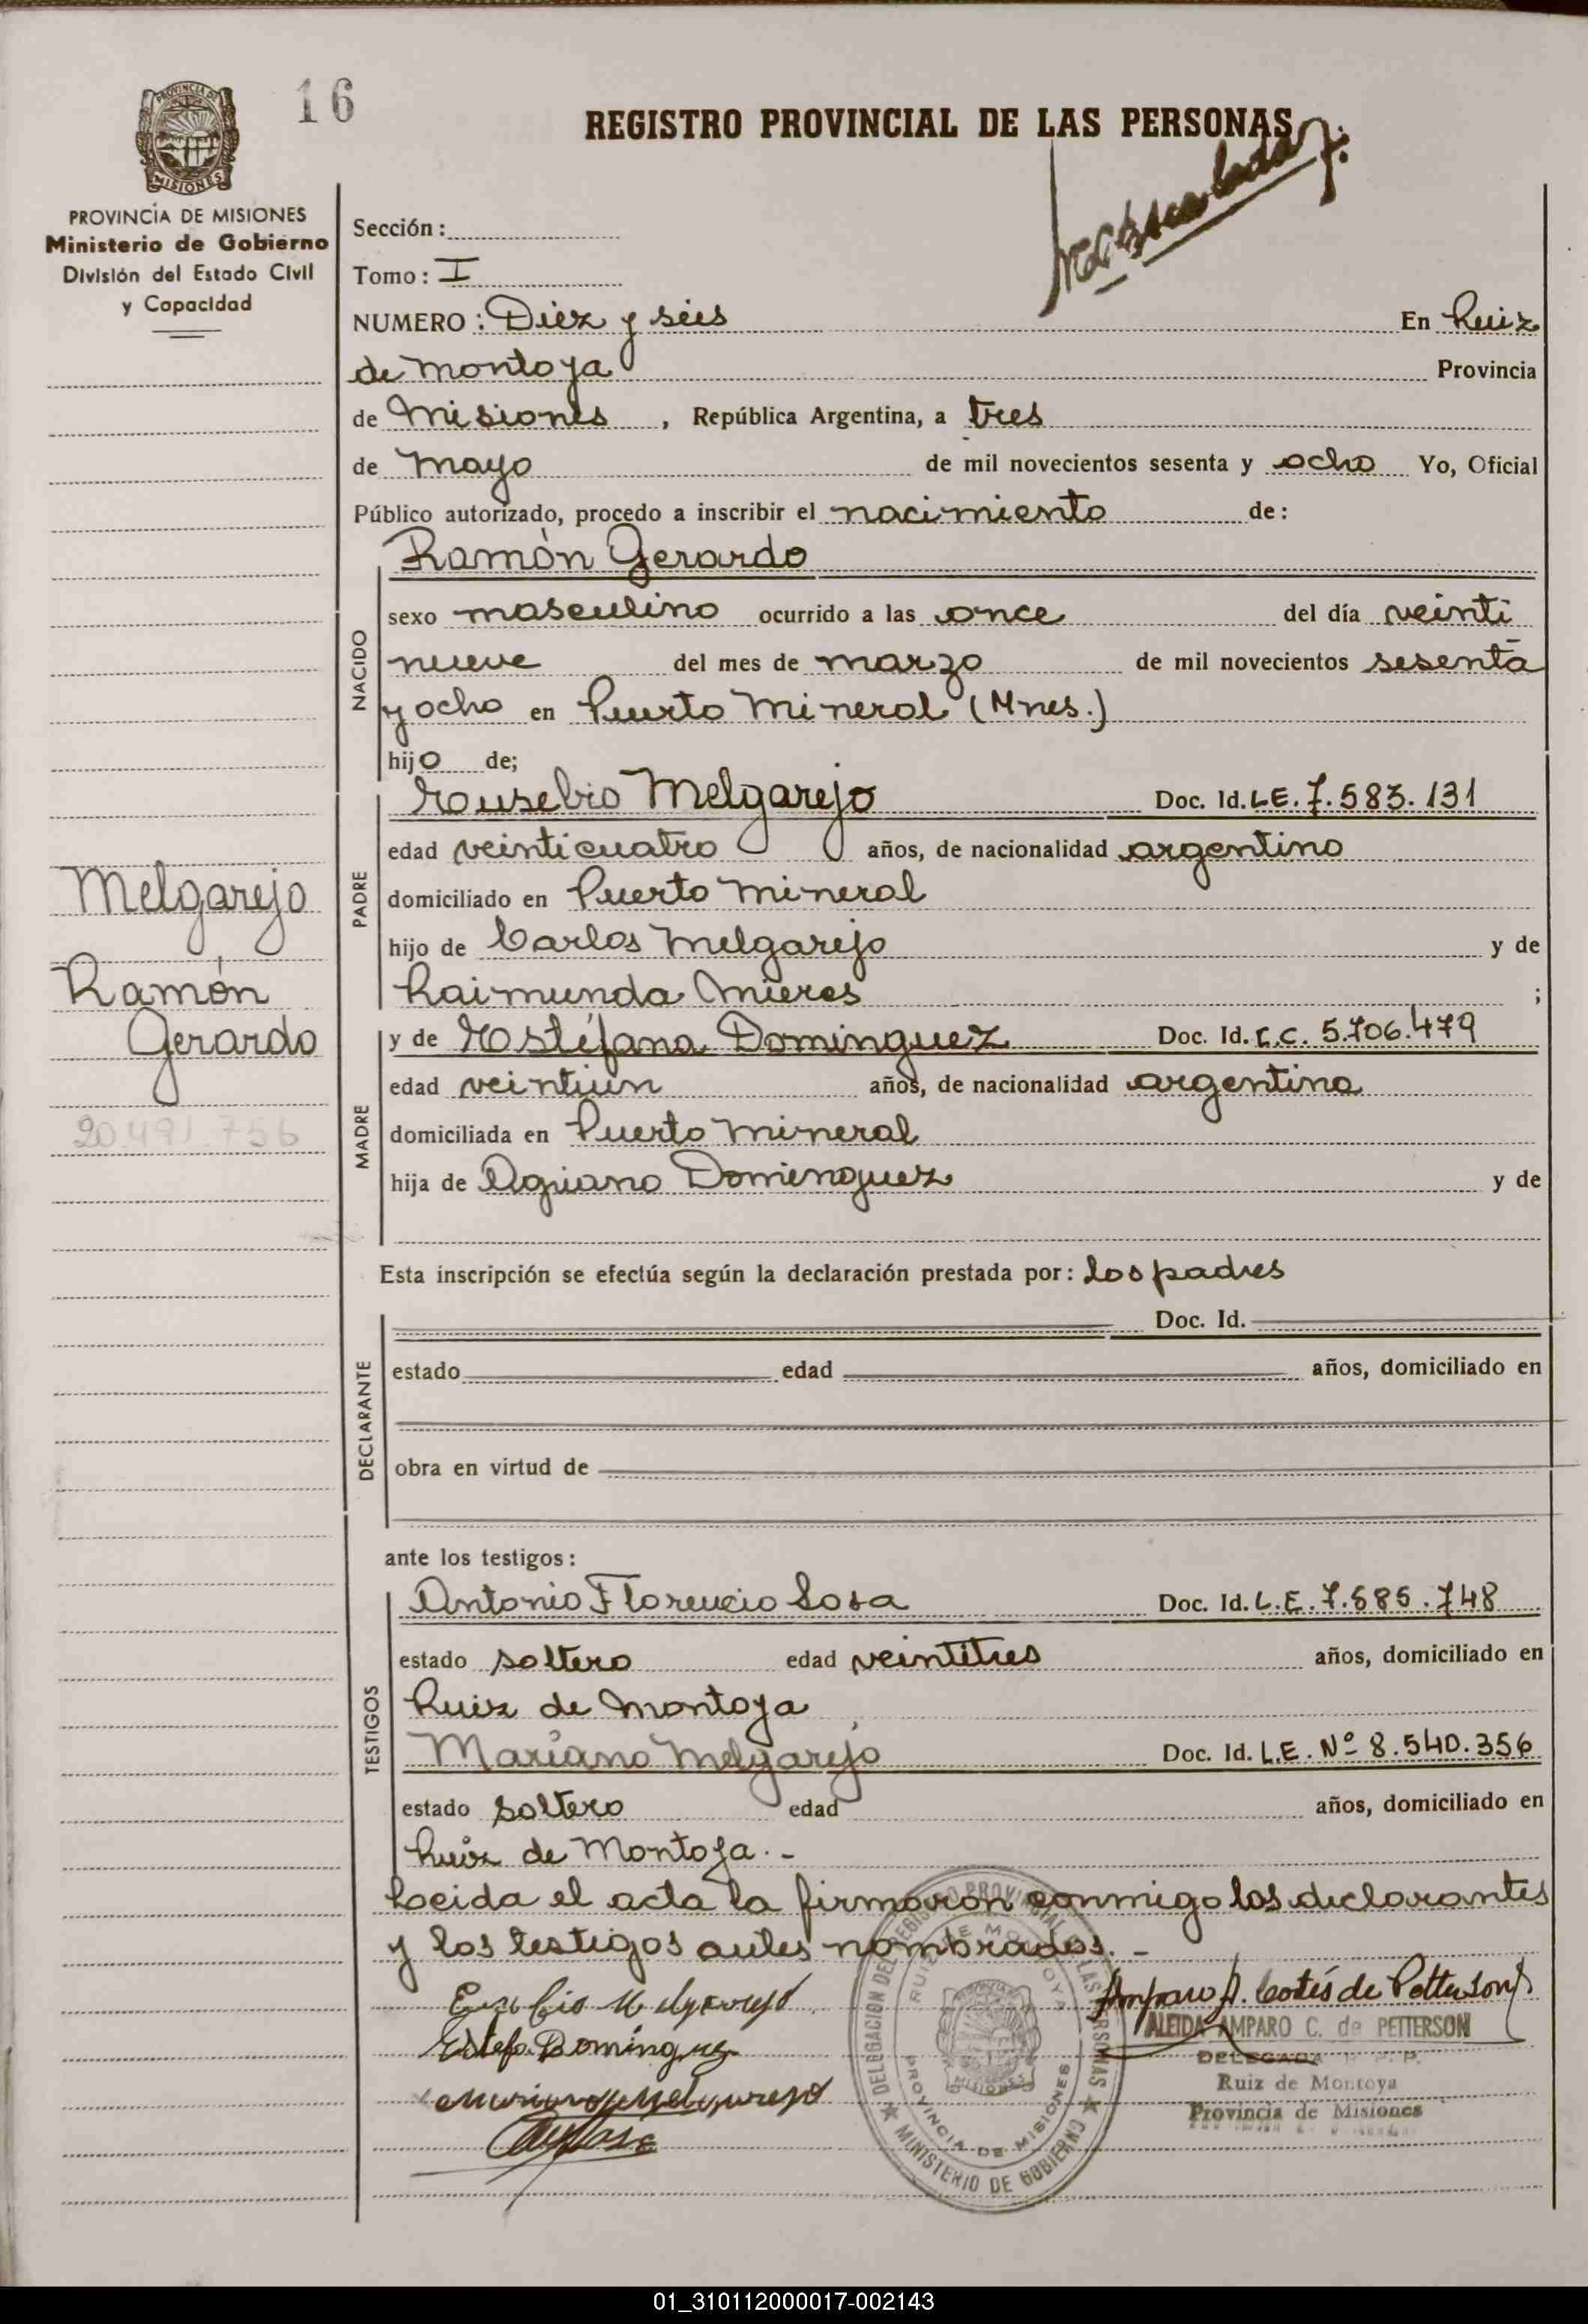 16
REGISTRO PROVINCIAL DE LAS PERSONAS
PROVINCIA DE
MISIONES
PROVINCIA DE MISIONES
Ministerio de Gobierno
División del Estado Civil
y Capacidad
Sección:
Tomo: I
NUMERO: Diez y seis En Ruiz
de Montoya Provincia
de Misiones, República Argentina, a tres
de Mayo de mil novecientos sesenta y ocho Yo, Oficial
Público autorizado, procedo a inscribir el nacimiento de:
NACIDO
Ramón Gerardo
sexo masculino ocurrido a las once del día veinti
nueve del mes de marzo de mil novecientos sesenta
y ocho en Puerto Mineral (Mnes.)
hijo de;
PADRE
Eusebio Melgarejo Doc. Id. L.E. 7.583.131
edad veinticuatro años, de nacionalidad argentino
domiciliado en Puerto Mineral
hijo de Carlos Melgarejo y de
Raimunda Mieres ;
MADRE
y de Estéfana Dominguez Doc. Id. L.C. 5.706.479
edad veintiun años, de nacionalidad argentina
domiciliada en Puerto Mineral
hija de Agriano Domenguez y de
Melgarejo
Ramón
Gerardo
20.491.756
Esta inscripción se efectúa según la declaración prestada por: los padres
DECLARANTE
Doc. Id.
estado edad años, domiciliado en
obra en virtud de
ante los testigos:
TESTIGOS
Antonio Florencio Sosa Doc. Id. L.E. 7.585.748
estado soltero edad veintitres años, domiciliado en
Ruiz de Montoya
Mariano Melgarejo Doc. Id. L.E. Nº 8.540.356
estado soltero edad años, domiciliado en
Ruiz de Montoya.-
Leeida el acta la firmaron conmigo los declarantes
y los testigos antes nombrados.-
Eusebio Melgarejo
Estefa Domínguez
Mariano Melgarejo
Amparo A. Cortés de Petterson
ALEIDA AMPARO C. de PETTERSON
DELEGADA R. P. P.
Ruiz de Montoya
Provincia de Misiones
DELEGACION DEL REGISTRO PROVINCIAL DE LAS PERSONAS
RUIZ DE MONTOYA
PROVINCIA DE MISIONES
MINISTERIO DE GOBIERNO
01_310112000017-002143